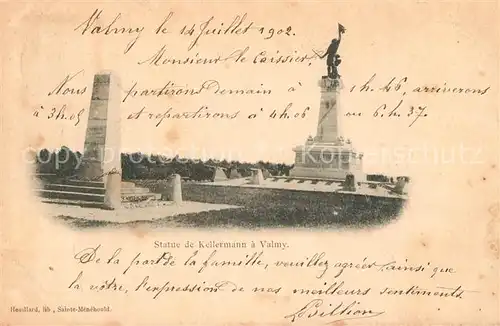 Valmy le 14 Juillet 1902.
Monsieur le Caissier,
Nous partirons Demain à 1h. 46, arriverons
à 3h.05 et repartirons à 4h.06 ou 6.h.37.
Statue de Kellermann à Valmy.
De la part de la famille, veuillez agréer, ainsi que
la vôtre, l'expression de nos meilleurs sentiments.
Heuillard, lib., Sainte-Ménehould.